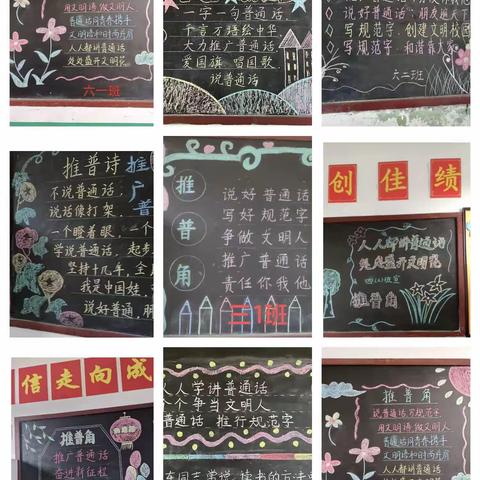 用文明语,做文明人
普通话问青春携手
文明语和时尚并肩
人人都讲普通话
处处盛开文明花
六一班
一字一句普通话
千言万语绘中华
大力推广普通话
爱国旗 唱国歌
说普通话
说好普通话,朋友遍天下
写规范字,创建文明校园
写规范字,和谐靠大
六二班
推普诗
不说普通话,
说话像打架,
一个瞪着眼,一个
学说普通话,起步
坚持十几年,全
我是中国娃,
说好普通,朋
推广普
推普角
说好普通话
写好规范字
争做文明人
推广普通话
责任你我他
三1班
创佳绩
人人都讲普通话
处处盛开文明花
推普角
信走向成
推普角
推广普通话
奋进新征程
人人学讲普通话
个个争当文明人
普通话 推行规范字
推普角
说普通话,写规范字
用文明语,做文明人
普通话问青春携手
文明语和时尚并肩
人人都讲普通话
处处盛开文明花